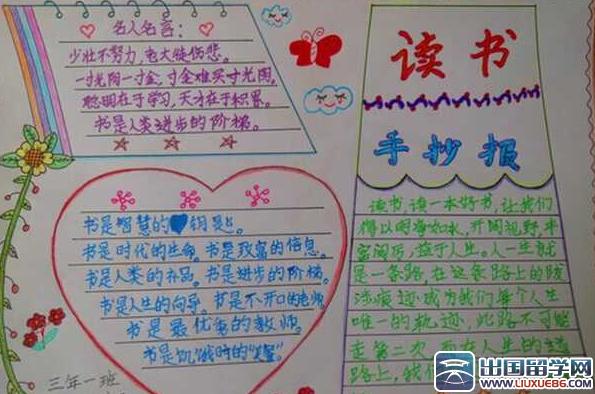 名人名言：
少壮不努力，老大徒伤悲。
一寸光阴一寸金，寸金难买寸光阴。
聪明在于学习，天才在于积累。
书是人类进步的阶梯。
书是智慧的钥匙。
书是时代的生命。书是致富的信息。
书是人类的礼品。书是进步的阶梯。
书是人生的向导。书是不开口的老师
书是最优秀的教师。
书是饥饿时的
三年一班
读书
手抄报
读书读一本好书，让我们
得以明净如水，开阔视野，丰
富阅历，益于人生。人一生就
是一条路，在这条路上的跋
涉痕迹成为我们每个人生
唯一的轨迹，此路不可能
走第二次，而在人生的道
路上，我们
出国留学网
WWW.LIUXUE86.COM